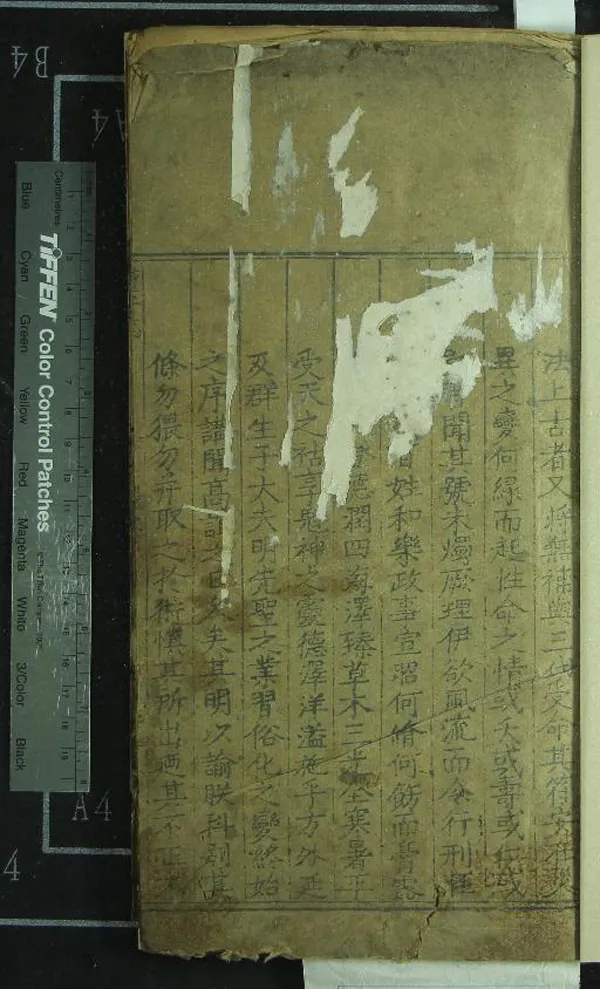 法上古者又將無補與三代受命其符安在災
異之變何緣而起性命之情或夭或壽或仁或
習聞其號未燭厥理伊欲風流而令行刑輕
百姓和樂政事宣昭何脩何飭而膏露
登德潤四海澤臻草木三光全寒暑平
受天之祜享鬼神之靈德澤洋溢施乎方外延
及群生子大夫明先聖之業習俗化之變終始
之序講聞高誼之日久矣其明以諭朕科別其
條勿猥勿并取之於術慎其所出迺其不正不
B4
A4
A4
4
Centimetres
TIFFEN Color Control Patches
Blue Cyan Green Yellow Red Magenta White 3/Color Black